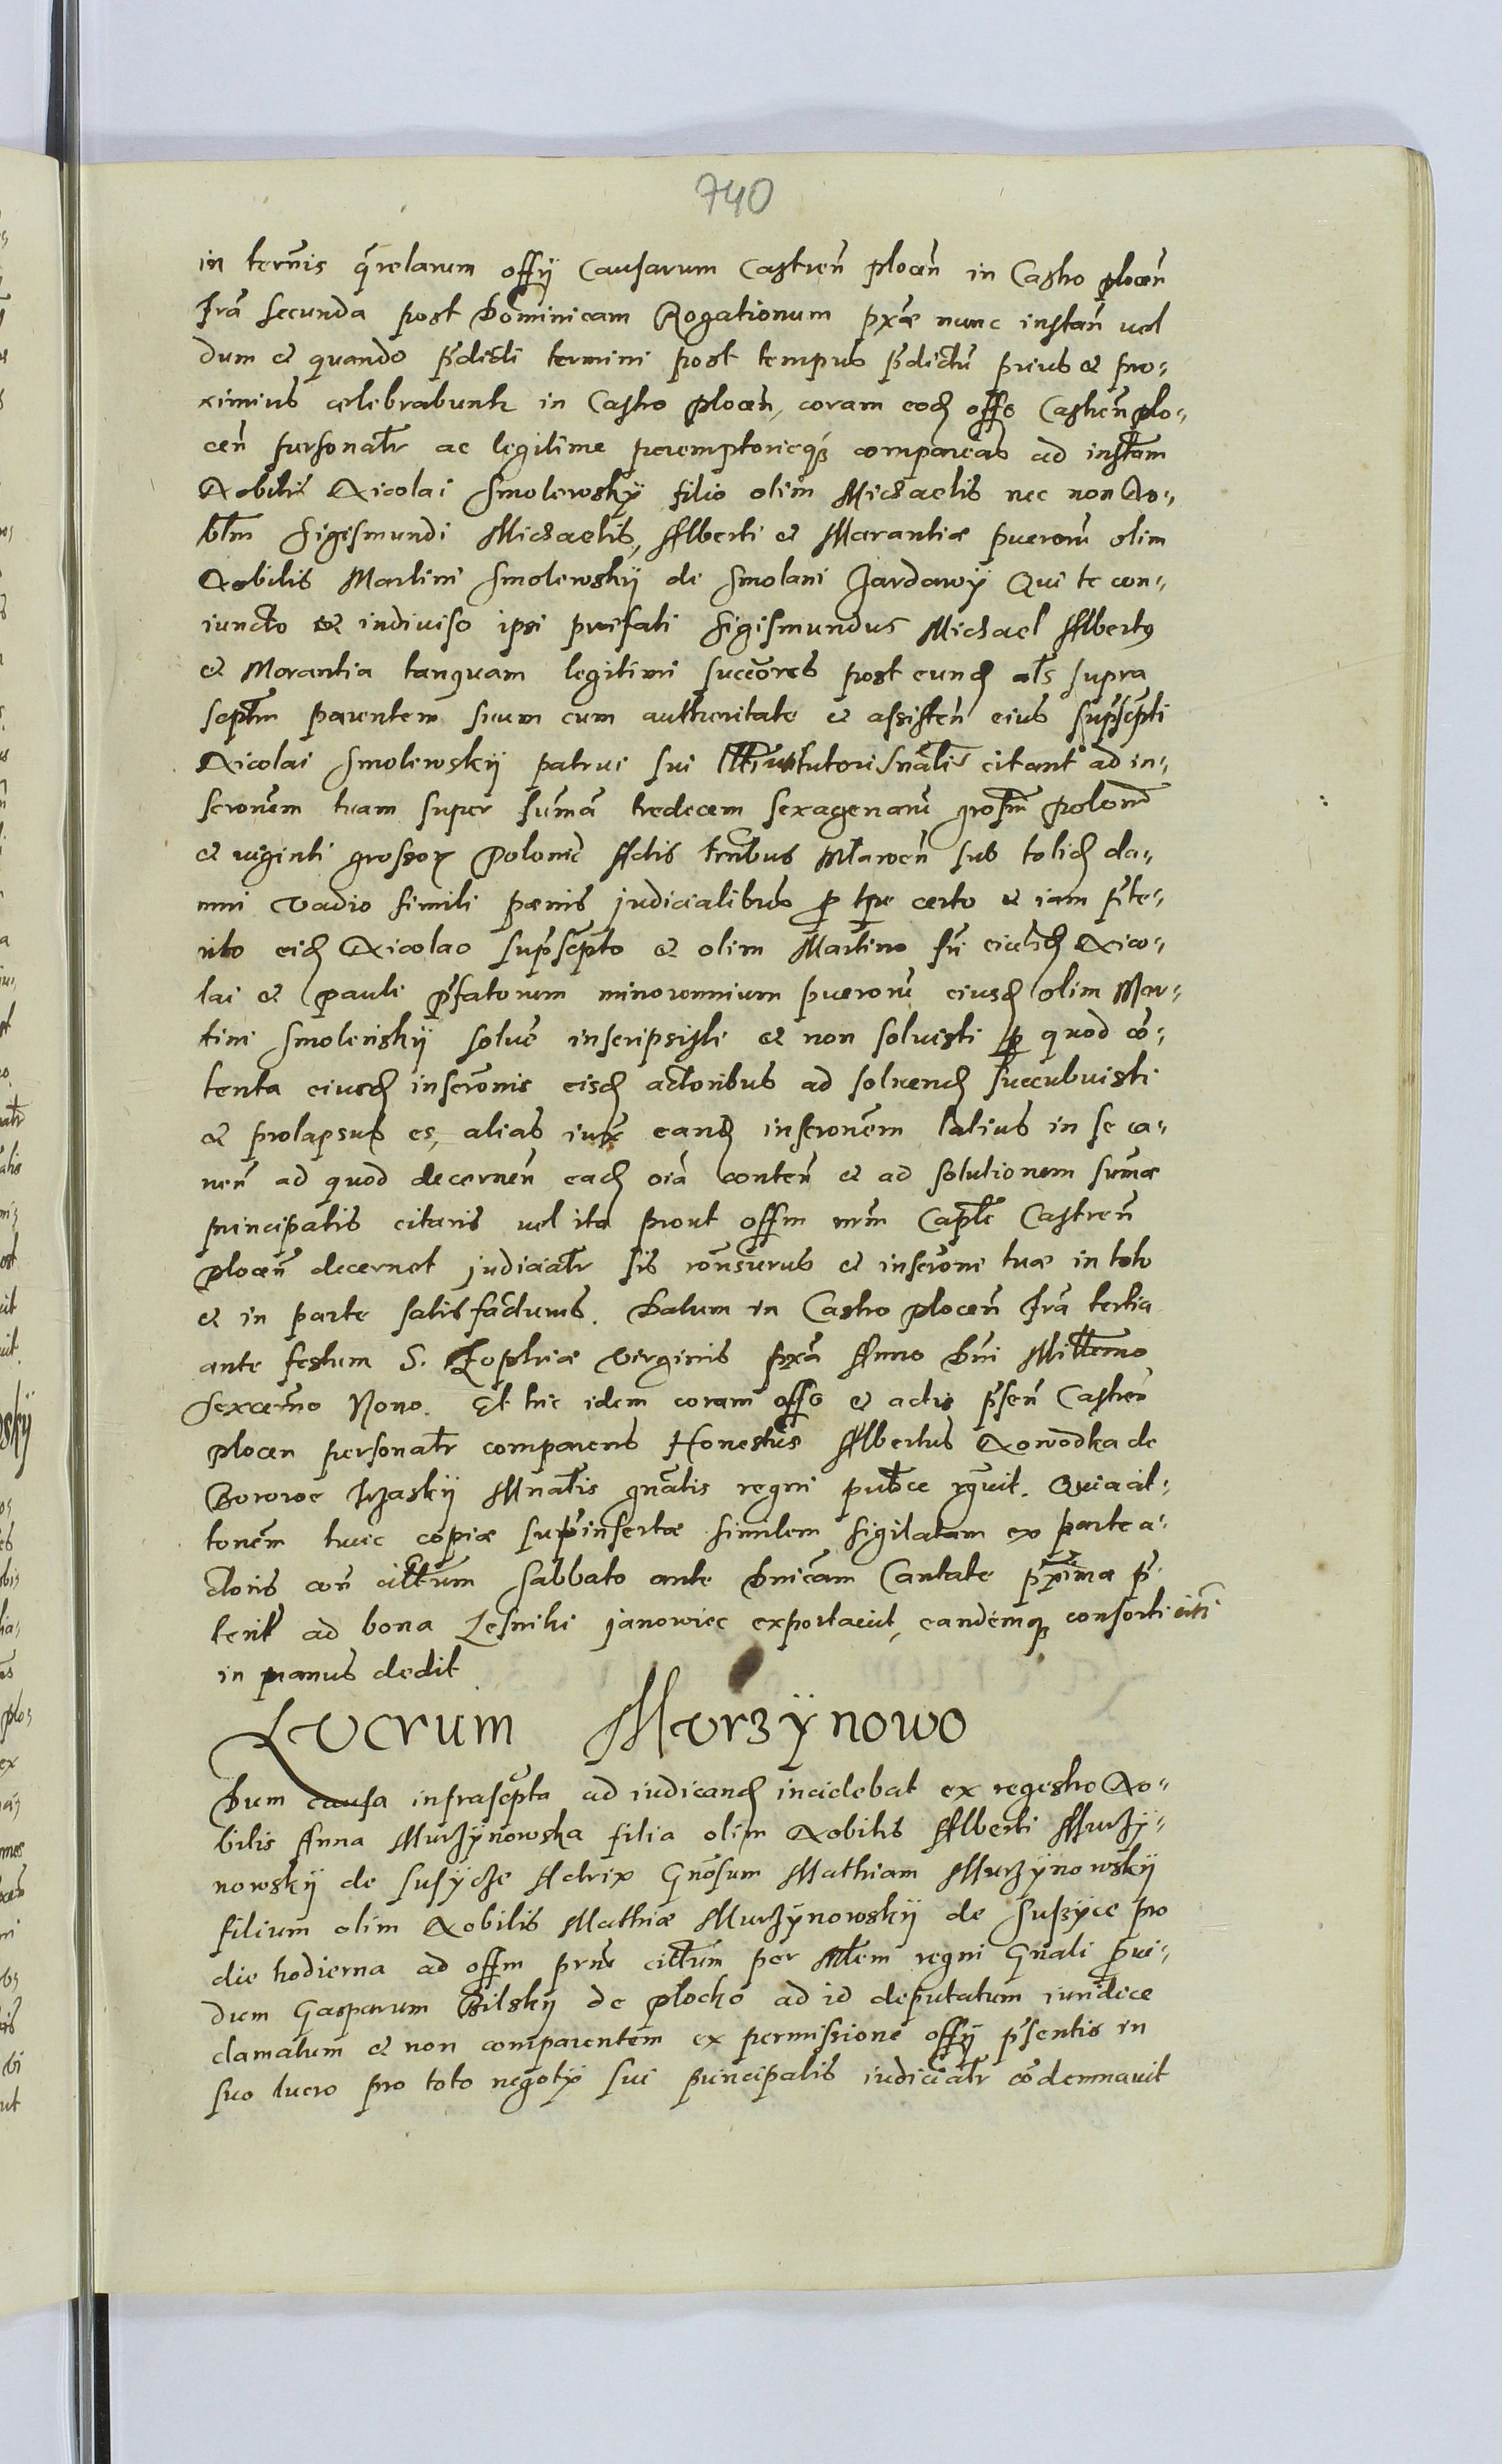 740
in termis q̃relarum offÿ Causarum Castreñ ploceñ in Castro ploceñ
fr̃a secunda post Dominicam Rogationum px̃ae nunc instañ vel
dum et quando p̃dicti termini post tempus p̃dictũ prius et pro-
ximius celebrabuntr in Castro ploceñ, coram eodẽ offo Castreñ plo-
ceñ personalr ac legitime peremptorieqȝ compareas ad instãm
Nobilis Nicolai Smolewskÿ filio olim Michaelis nec non No-
blm Sigismundi Michaelis, Alberti et Marantiæ puerorũ olim
Nobilis Martini Smolewskÿ de Smolani Zardawÿ Qui te con-
iuncto et indiviso ipsi præfati Sigismundus Michael Albertus
et Marantia tanquam legitimi succẽores post eundẽ als supra
scptm parentem suum cum authoritate et assisteñ eius suprascpti
Nicolai Smolewskÿ patrui sui tutoris nãlis citant ad in-
scronem tuam super sum̃a tredecem sexagenarũ grossm polonic
et viginti grossor Polonic Actis trnbus Mlawcñ sub tolidẽ da-
mni vadio simili pœnis judicialibus p tpe certo et iam p̃te-
rito eidẽ Nicolao suprascpto et olim Martino fri eiusdẽ Nico-
lai et Pauli p̃fatorum minorennium puerorũ eiusdẽ olim Mar-
tini Smolenskÿ solvẽ inscripsisti et non solvisti p quod cõ-
tenta eiusdẽ inscronis eisdẽ actoribus ad solvendẽ succubuisti
et prolapsus es, alias iuxta eandẽ inscronem latius in se ca-
neñ ad quod decerneñ eadẽ oĩa conteñ et ad solutionem sum̃æ
principalis citaris vel ita prout offm nrm Caple Castreñ
ploceñ decernet judicialr sis ronsurus et inscroni tuæ in toto
et in parte satisfacturus. Datum in Castro ploceñ fr̃a tertia
ante festum S. Zophiæ Virginis px̃a Anno Dni Millemo
sexcemo Nono. Et hic idem coram offo et actis p̃señ Castreñ
plocen personalr comparens Honestus Albertus Nowodka de
Borowe Mnalis gnalis regni publce rgvit. Quia cit-
tonem huic copiæ supinsertæ similem sigilatam ex parte a-
ctoris coñ cittum sabbato ante Dnicam Cantate pxima p̃-
terit ad bona Lesniki Janowiec exportavit, eandemqȝ consorti citi
in manus dedit
Lucrum Murzÿnowo
Dum causa infrascpta ad iudicandẽ incidebat ex regestro No-
bilis Anna Murzÿnowska filia olim Nobilis Alberti Murzÿ-
nowskÿ de Susÿcze Actrix Gnosum Mathiam Murzÿnowskÿ
filium olim Nobilis Mathiæ Murzÿnowskÿ de Suszÿce pro
die hodierna ad offm prns cittum per Mlem regni Gnali pvi-
dum Gasparum Bilskÿ de plocko ad id deputatum iuridice
clamatum et non comparentem ex permissione offÿ p̃sentis in
suo lucro pro toto negotÿ sui principalis iudicialr cõdemnavit